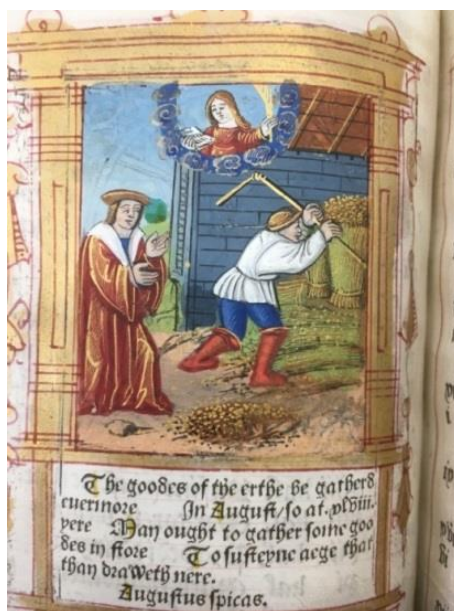 The goodes of the erthe be gathers
euermore In August/so at .xlviii.
yere Man ought to gather some goo
des in store To susteyne aege that
than draweth nere.
Augustus spicas.